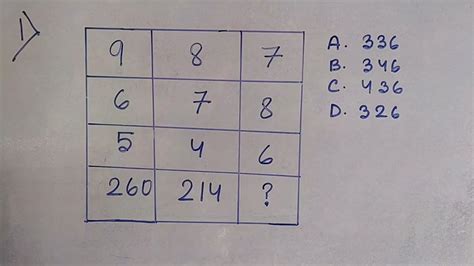 1)
9 8 7 A. 336
6 7 8 B. 346
5 4 6 C. 436
260 214 ? D. 326